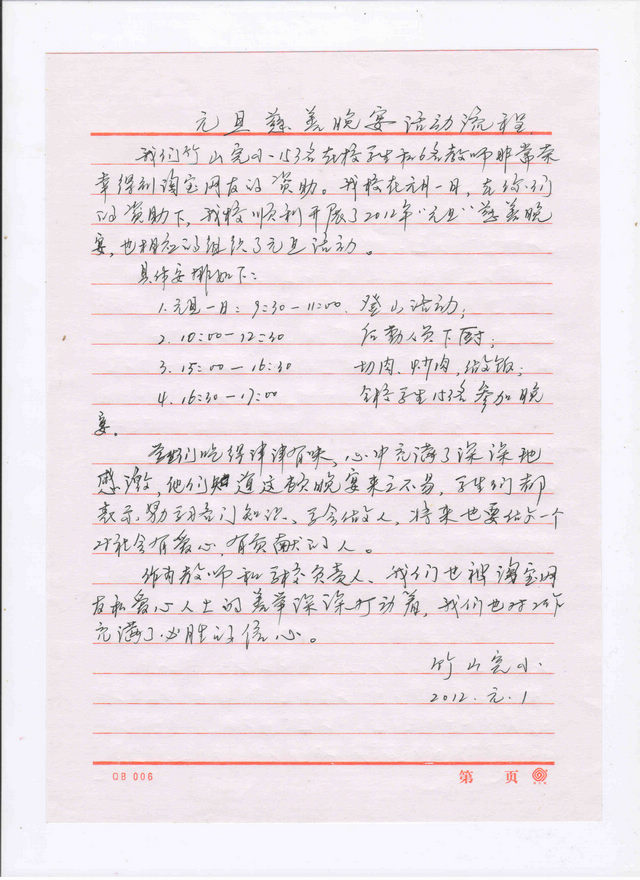 元旦慈善晚宴活动流程
我们竹山完小153名在校学生和6名教师非常荣
幸得到淘宝网友的资助。我校在元月一日，在你们
的资助下，我校顺利开展了2012年“元旦”慈善晚
宴，也相应的组织了元旦活动。
具体安排如下：
1.元旦一日：9:30—11:00 登山活动；
2.10:00—12:30 后勤人员下厨；
3.15:00—16:30 切肉、炒肉，做饭；
4.16:30—17:00 全校学生153名参加晚
宴。
学生们吃得津津有味，心中充满了深深地
感激，他们知道这顿晚宴来之不易，学生们都
表示努力学习知识、学会做人，将来也要做一个
对社会有爱心，有贡献的人。
作为教师和学校负责人、我们也被淘宝网
友和爱心人士的善举深深打动着，我们也对工作
充满了必胜的信心。
竹山完小
2012.元.1
QB 006
第 页